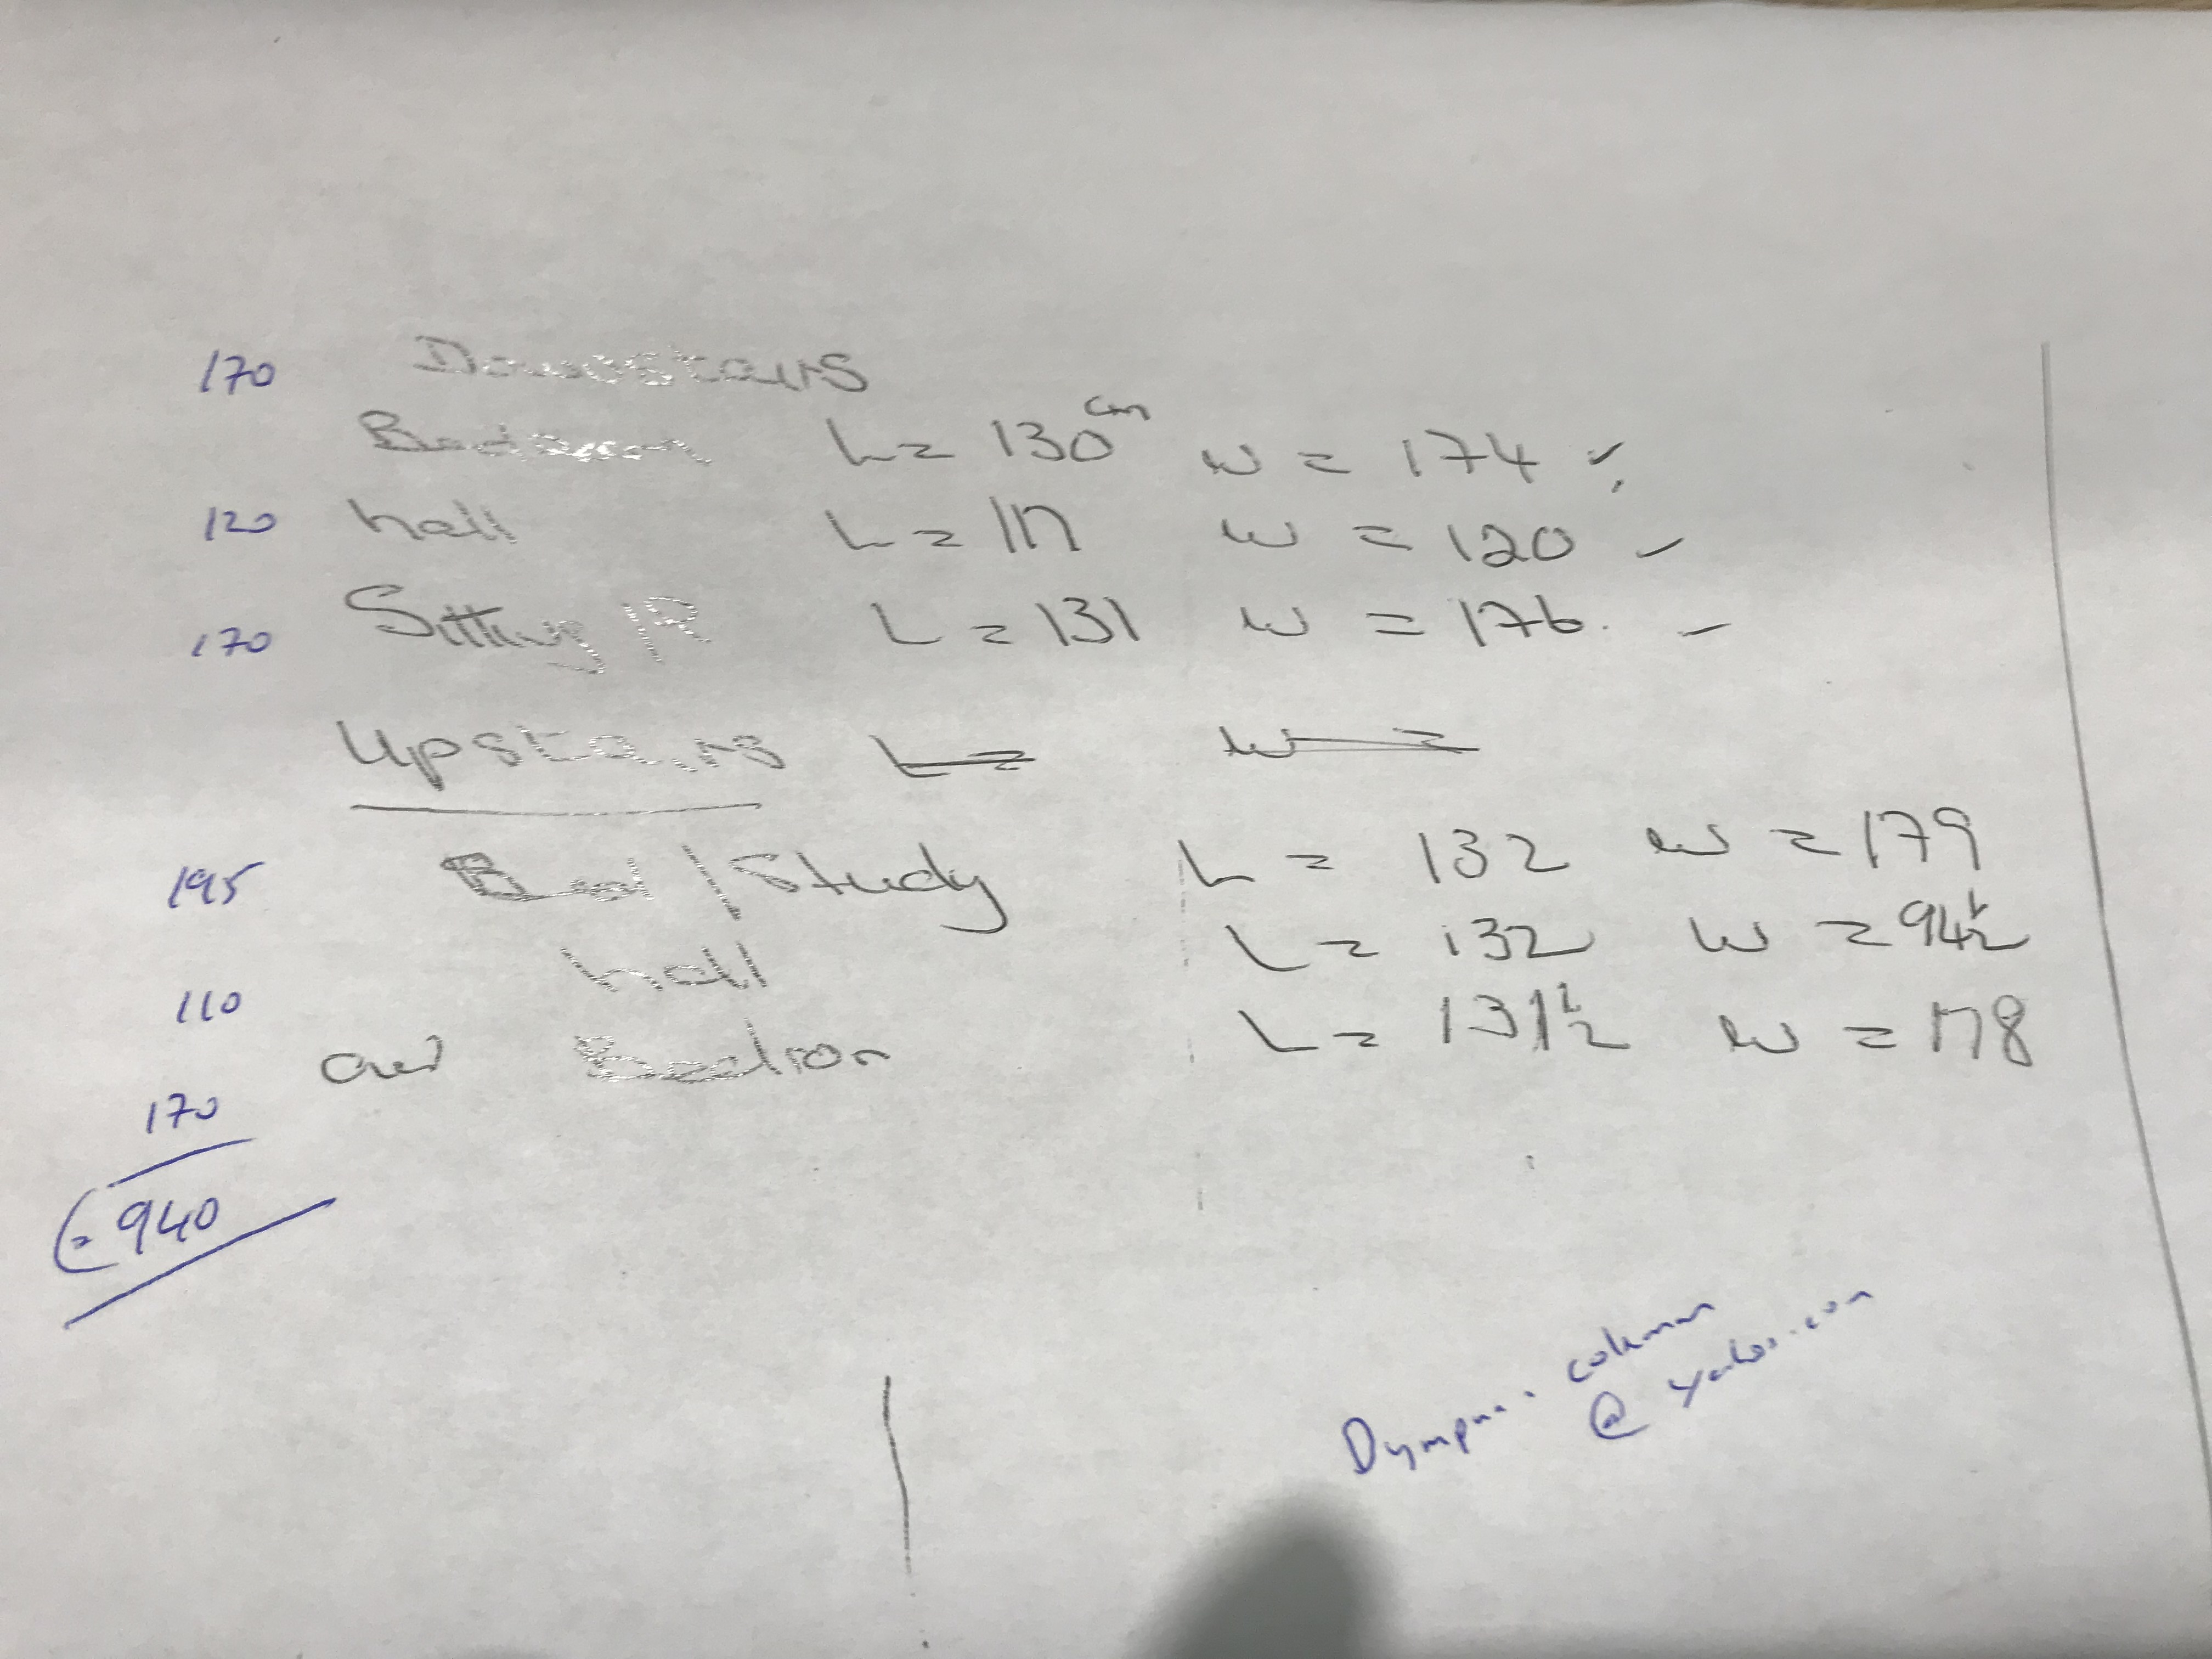 170 Downstairs
Bedroom L = 130cm w = 174
120 hall L = 117 w = 120
170 Sitting R L = 131 w = 176.
Upstairs L= w =
195 Bed/Study L = 132 w = 179
110 hall L = 132 w = 94½
170 our Bedroom L = 131½ w = 178
940
Dympna. coleman
@ yahoo.com